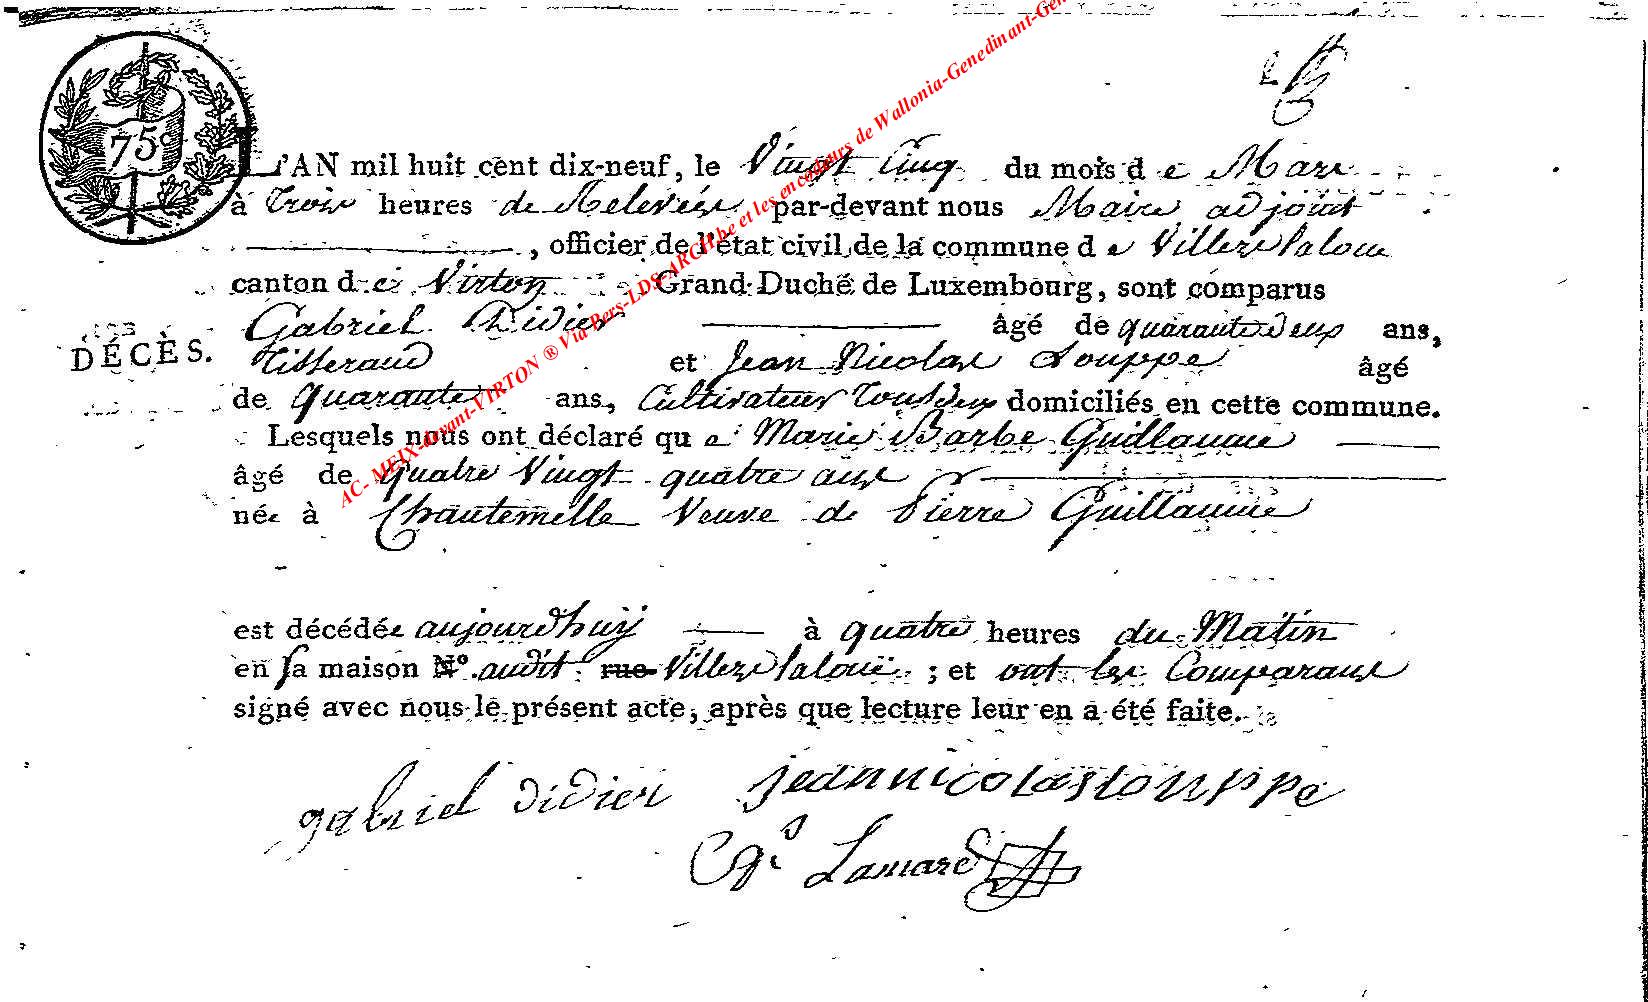 75c
L'AN mil huit cent dix-neuf, le Vingt Cinq du mois de Mars
à Trois heures de Relevée par-devant nous Maire adjoint
, officier de l'état civil de la commune de Villers laloue
canton de Virton Grand-Duché de Luxembourg, sont comparus
Gabriel Didier âgé de quarante deux ans,
DÉCÈS.
Tisserand et Jean Nicolas Louppe âgé
de quarante ans, Cultivateur Tous deux domiciliés en cette commune.
Lesquels nous ont déclaré que Marie Barbe Guillaume
âgé de quatre Vingt quatre ans
née à Chantemelle Veuve de Pierre Guillaume
est décédée aujourdhuy à quatre heures du Matin
en sa maison N° audit rue Villers laloué ; et ont les Comparans
signé avec nous le présent acte, après que lecture leur en a été faite.
gabriel didier jean nicolas louppe
Lamard
AC- MEIX-devant-VIRTON ® Via Bers-LDS-ARCH.be et les encodeurs de Wallonia-Genedinant-Gen